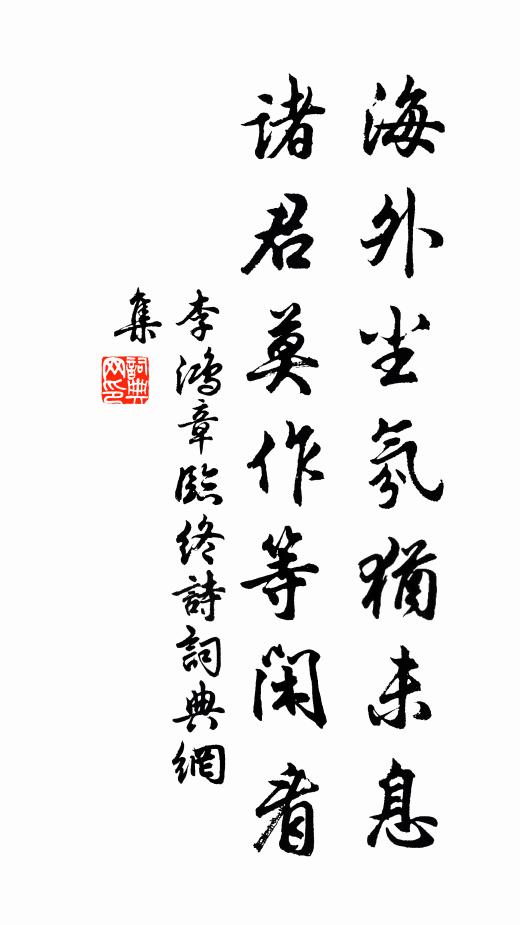 海外尘氛犹未息
诸君莫作等闲看
李鸿章臨终詩詞典網
集
詞典网印